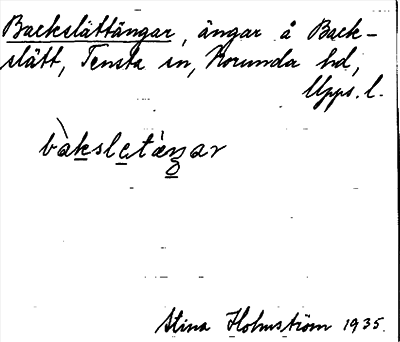 Backslättängar, ängar å Back-
slätt, Tensta sn, Norunda hd,
Upps. l.
bàksletàŋar
Stina Holmström 1935.